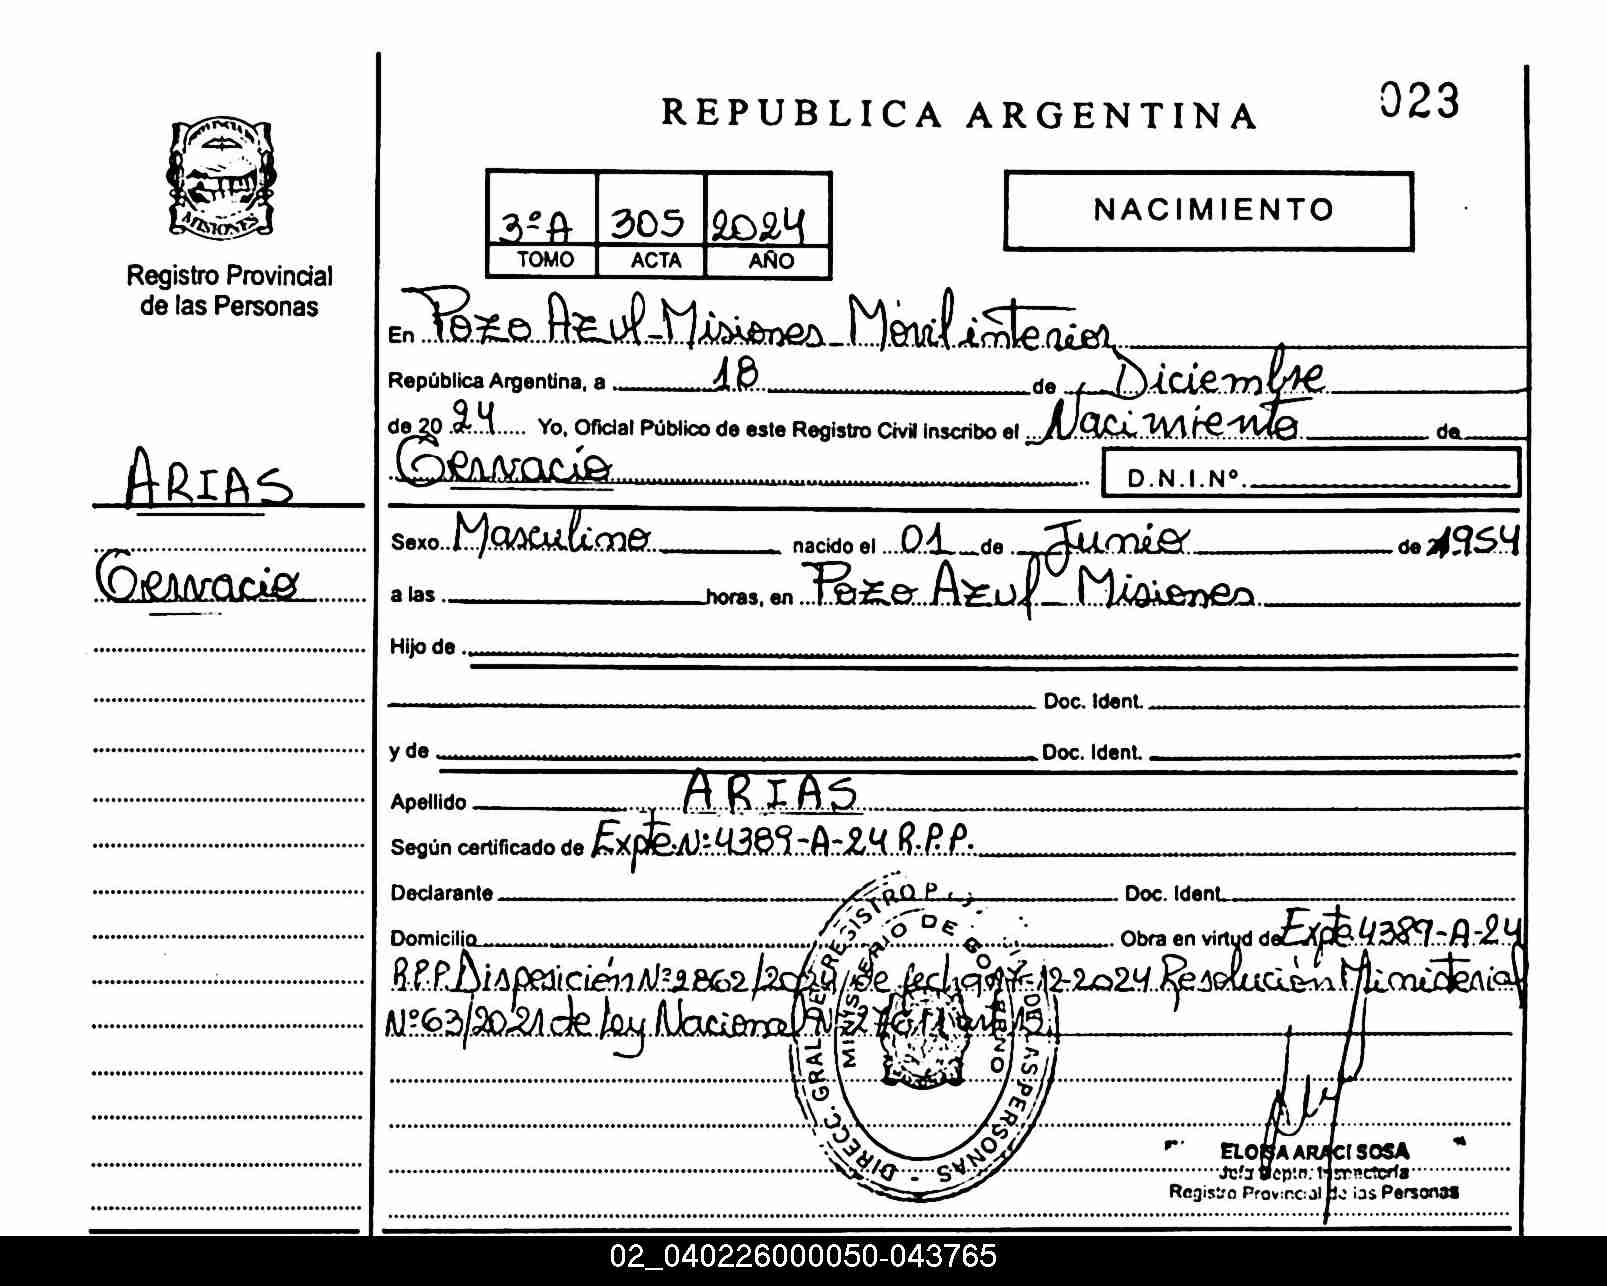 REPUBLICA ARGENTINA
023
PROVINCIA DE
MISIONES
Registro Provincial
de las Personas
3ºA 305 2024
TOMO ACTA AÑO
NACIMIENTO
En Pozo Azul - Misiones - Móvil interior
República Argentina, a 18 de Diciembre
de 20 24 Yo, Oficial Público de este Registro Civil Inscribo el Nacimiento de
Gervacio D.N.I.Nº.
ARIAS
Gervacio
Sexo Masculino nacido el 01 de Junio de 1954
a las horas, en Pozo Azul - Misiones
Hijo de
Doc. Ident.
y de Doc. Ident.
Apellido ARIAS
Según certificado de Expte Nº: 4389-A-24 R.P.P.
Declarante Doc. Ident.
Domicilio Obra en virtud de Expte 4389-A-24
R.P.P. Disposición Nº 2862/2024 de fecha 17-12-2024 Resolución Ministerial
Nº 63/2021 de ley Nacional
DIRECC. GRAL. DEL REGISTRO P DE LAS PERSONAS -
MINISTERIO DE GOBIERNO
ELOISA ARACI SOSA
Jefa Depto. Inspectoría
Registro Provincial de las Personas
02_040226000050-043765